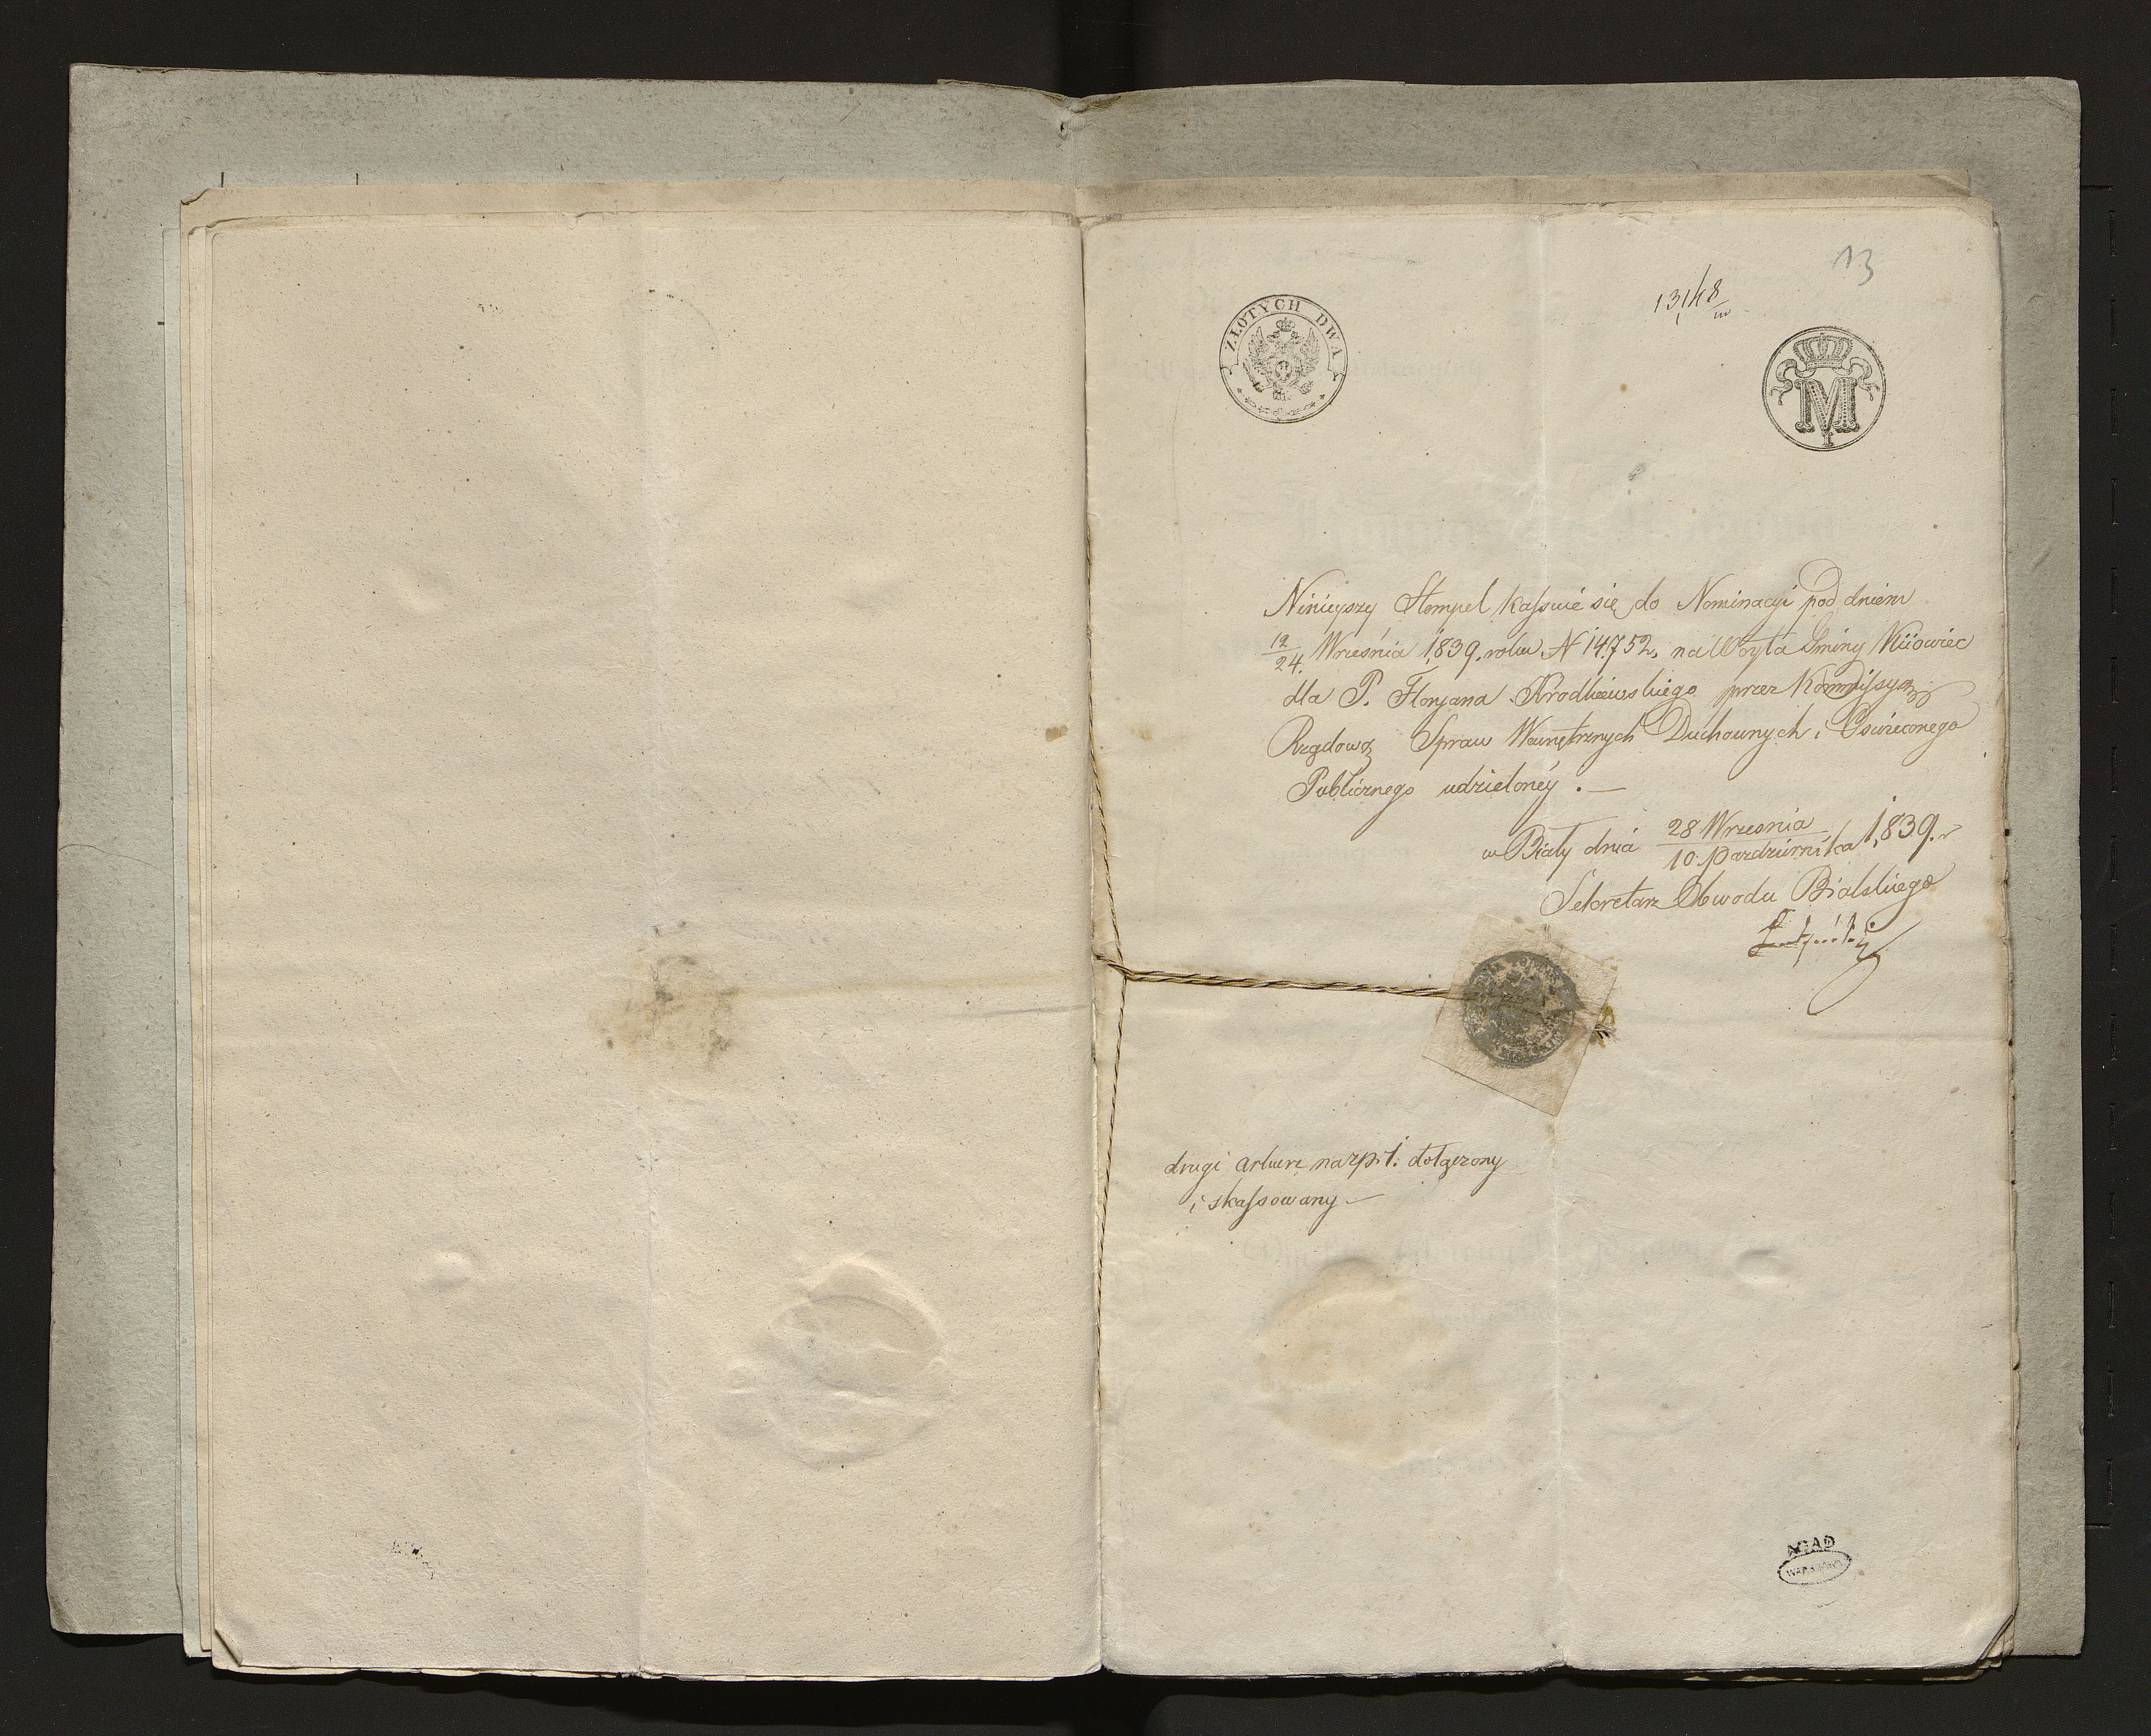 13
13148
ZŁOTYCH DWA
M
Niniejszy Stempel kassuie się do Nominacyi pod dniem
12/24. Września 1839. roku N 14752, na Woyta Gminy Kiiowiec
dla P. Floryana przez Kommissyą
Rządową Spraw Wewnętrznych Duchownych i Oświeconego
Publicznego udzieloney. —
w Biały dnia 28 Września/10 Pazdziernika 1839. r
Sekretarz Obwodu Bialskiego
drugi arkusz na zp. 1. dołączony
i skassowany —
AGAD
WARSZAWA